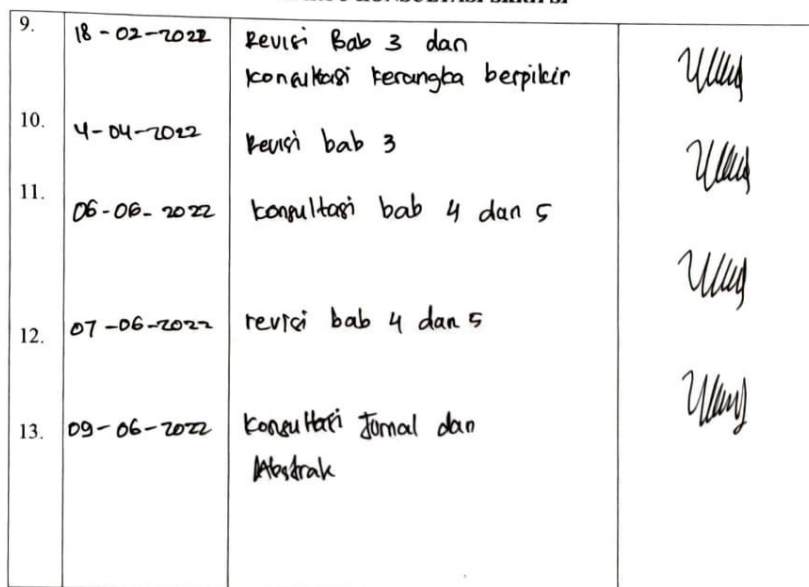 KONSULTASI SKRIPSI
9. 18-02-2022 Revisi Bab 3 dan
konsultasi kerangka berpikir
10. 4-04-2022 Revisi bab 3
11. 06-06-2022 konsultasi bab 4 dan 5
12. 07-06-2022 revisi bab 4 dan 5
13. 09-06-2022 konsultasi Jurnal dan
Abstrak